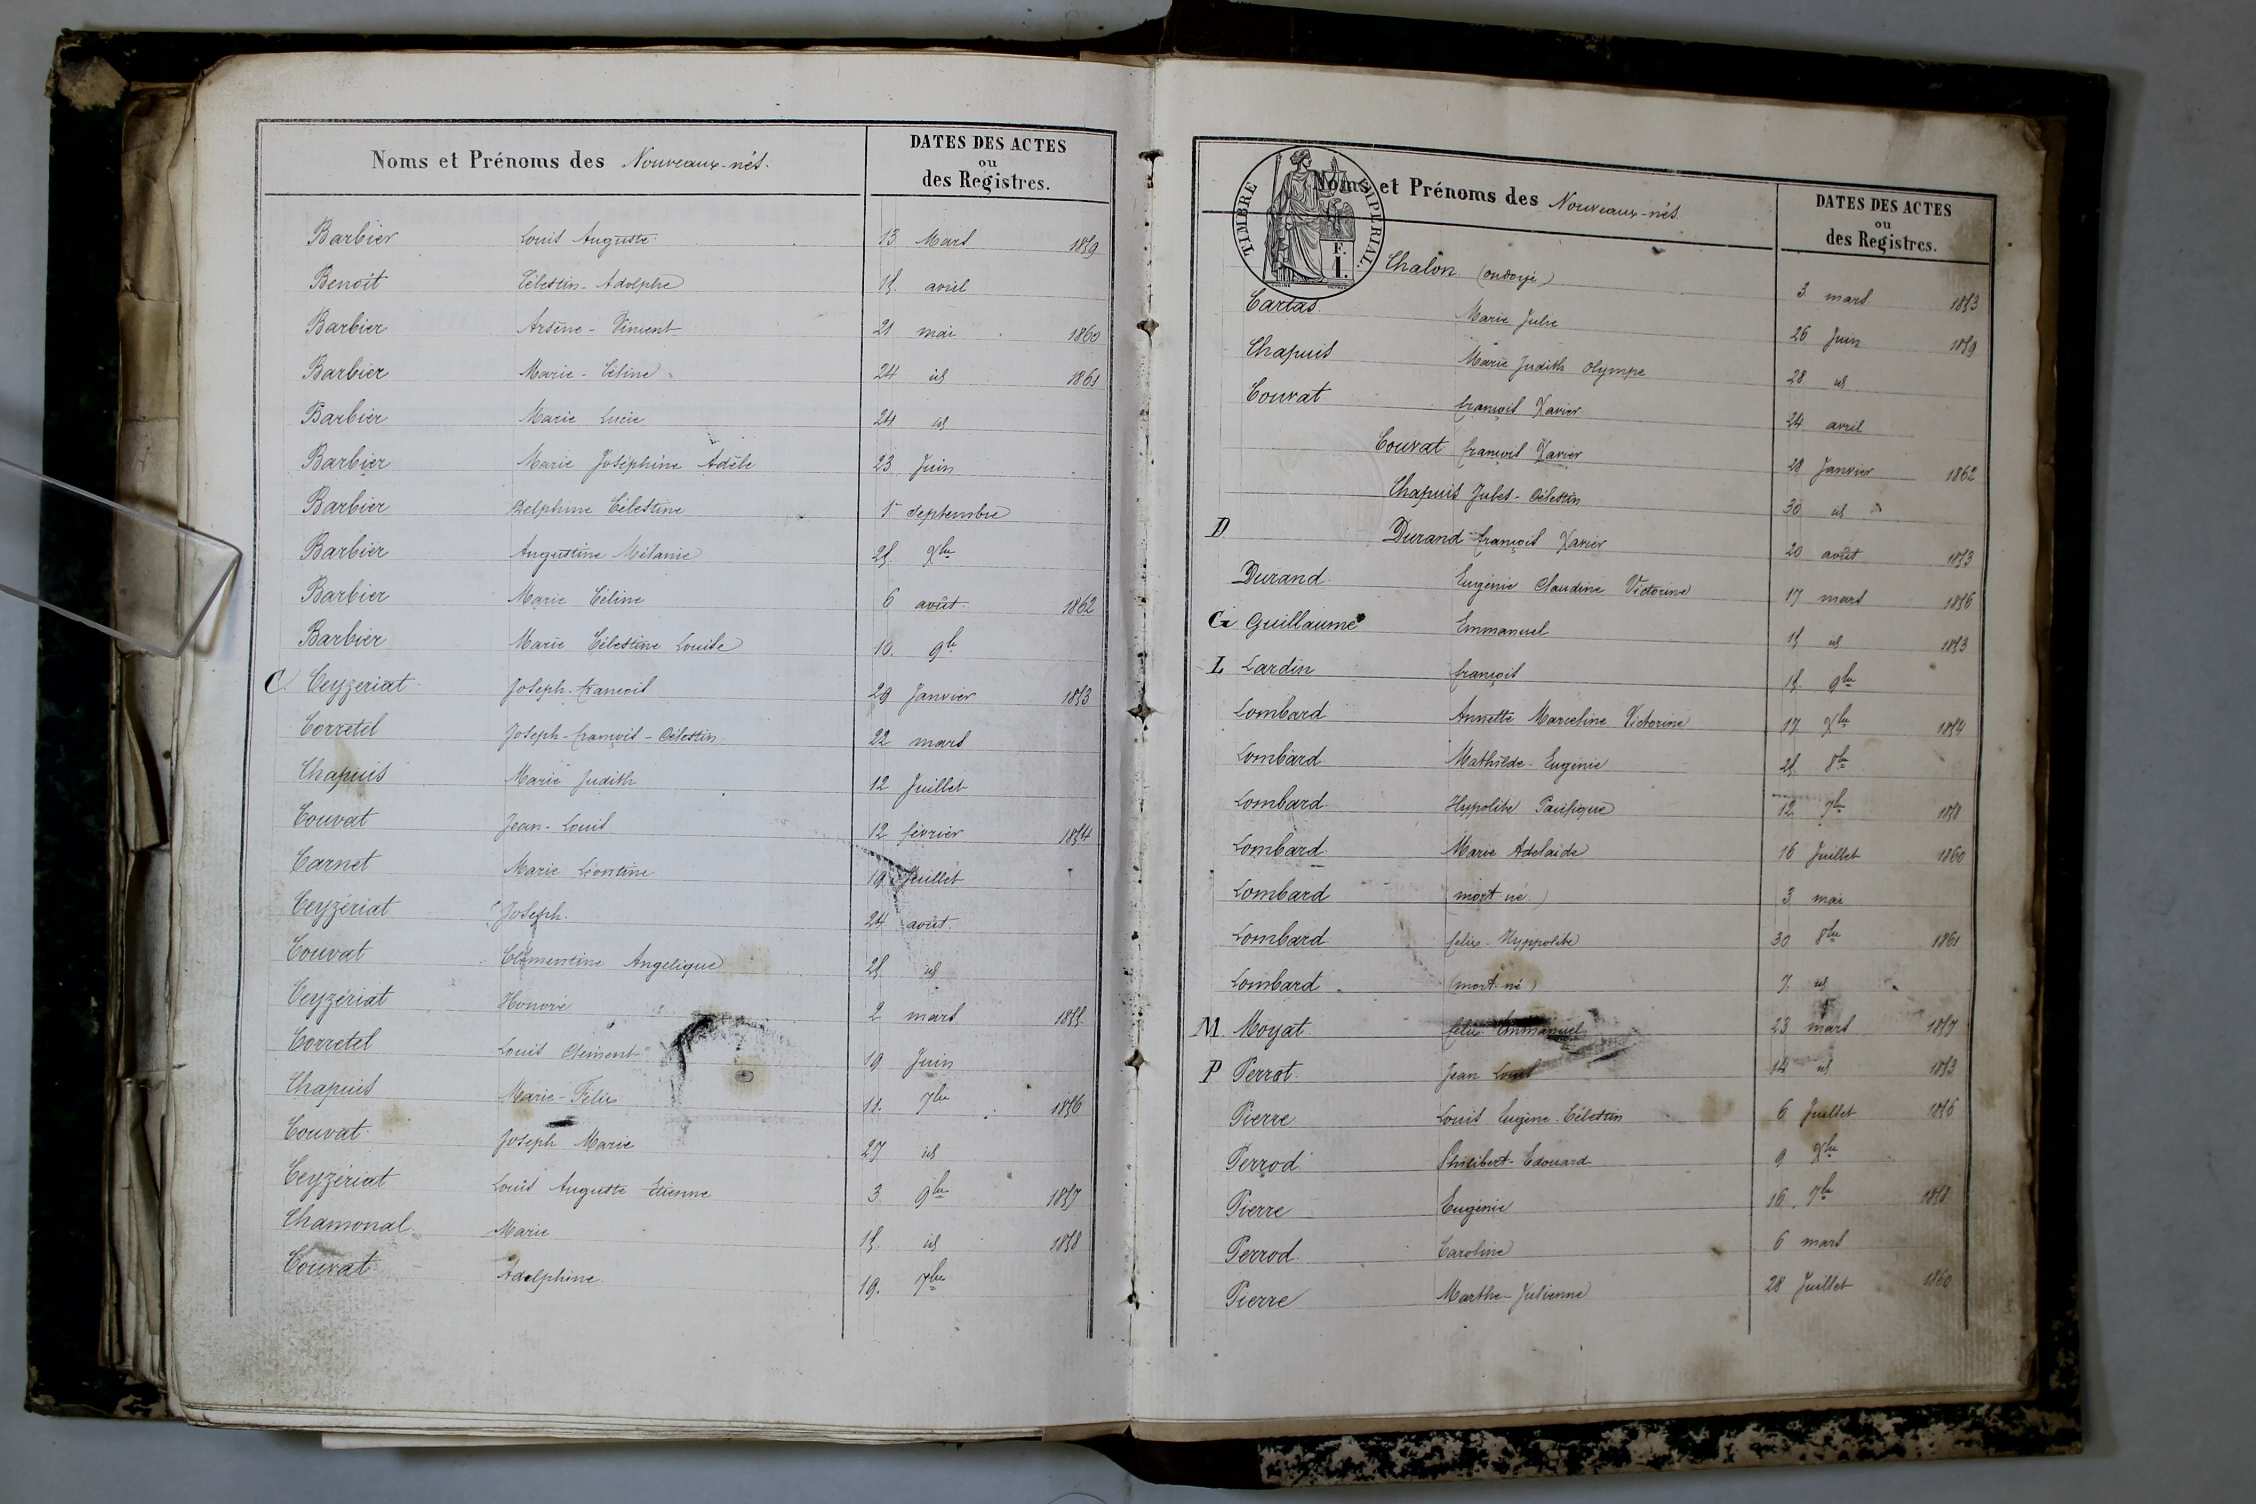 Noms et Prénoms des Nouveaux-nés.
DATES DES ACTES
ou
des Registres.
Barbier Louis Auguste 13 Mars 1859
Benoît Célestin-Adolphe 15 avril
Barbier Arsène-Vincent 21 mai 1860
Barbier Marie-Céline 24 id 1861
Barbier Marie Lucie 24 id
Barbier Marie Joséphine Adèle 23 Juin
Barbier Delphine Célestine 5 septembre
Barbier Augustine Mélanie 25 Xbre
Barbier Marie Céline 6 août 1862
Barbier Marie Célestine Louise 10 9bre
C Ceyzériat Joseph-françois 29 Janvier 1853
Corretel Joseph-françois-Célestin 22 mars
Chapuis Marie Judith 12 Juillet
Couvat Jean-Louis 12 février 1854
Carnet Marie Léontine 19 Juillet
Ceyzériat Joseph 24 août
Couvat Clémentine Angélique 25 id
Ceyzériat Honoré 2 mars 1855
Corretel Louis Clément 19 Juin
Chapuis Marie-Félix 11 7bre 1856
Couvat Joseph Marie 27 id
Ceyzériat Louis Auguste Etienne 3 9bre 1857
Chamonal Marie 15 id 1858
Couvat Adelphine 19 7bre
TIMBRE IMPERIAL
F.
1.
Noms et Prénoms des Nouveaux-nés
DATES DES ACTES
ou
des Registres.
Chalon (ondoyé) 3 mars 1853
Cartas Marie Julie 26 Juin 1859
Chapuis Marie Judith Olympe 28 id
Couvat françois Xavier 24 avril
Couvat françois Xavier 28 Janvier 1862
Chapuis Jules-Célestin 30 id
D Durand françois Xavier 20 août 1853
Durand Eugénie Claudine Victorine 17 mars 1856
G Guillaume Emmanuel 15 id 1853
L Lardin françois 15 9bre
Lombard Annette Marceline Victorine 17 Xbre 1854
Lombard Mathilde-Eugénie 25 8bre
Lombard Hypolite Pacifique 12 7bre 1858
Lombard Marie Adelaide 16 Juillet 1860
Lombard (mort né) 3 mai
Lombard felix-Hyppolite 30 8bre 1861
Lombard (mort né) 7 id
M Moyat felix Emmanuel 23 mars 1857
P Perrot Jean Louis 14 id 1853
Pierre Louis Eugène-Célestin 6 Juillet 1856
Perrod Philibert-Edouard 9 Xbre
Pierre Eugénie 16 7bre 1858
Perrod Caroline 6 mars
Pierre Marthe-Julienne 28 Juillet 1860